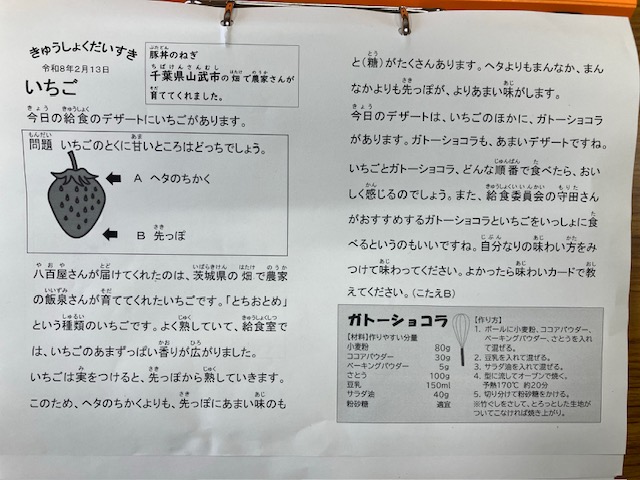 きゅうしょくだいすき
令和8年2月13日
いちご
豚丼のねぎ
千葉県山武市の畑で農家さんが
育ててくれました。
今日の給食のデザートにいちごがあります。
問題 いちごのとくに甘いところはどっちでしょう。
A ヘタのちかく
B 先っぽ
八百屋さんが届けてくれたのは、茨城県の畑で農家
の飯泉さんが育ててくれたいちごです。「とちおとめ」
という種類のいちごです。よく熟していて、給食室で
は、いちごのあまずっぱい香りが広がりました。
いちごは実をつけると、先っぽから熟していきます。
このため、ヘタのちかくよりも、先っぽにあまい味のも
と(糖)がたくさんあります。ヘタよりもまんなか、まん
なかよりも先っぽが、よりあまい味がします。
今日のデザートは、いちごのほかに、ガトーショコラ
があります。ガトーショコラも、あまいデザートですね。
いちごとガトーショコラ、どんな順番で食べたら、おい
しく感じるのでしょう。また、給食委員会の守田さん
がおすすめするガトーショコラといちごをいっしょに食
べるというのもいいですね。自分なりの味わい方をみ
つけて味わってください。よかったら味わいカードで教
えてください。(こたえB)
ガトーショコラ
【材料】作りやすい分量
小麦粉 80g
ココアパウダー 30g
ベーキングパウダー 5g
さとう 100g
豆乳 150ml
サラダ油 40g
粉砂糖 適宜
【作り方】
1. ボールに小麦粉、ココアパウダー、
ベーキングパウダー、さとうを入れ
て混ぜる。
2. 豆乳を入れて混ぜる。
3. サラダ油を入れて混ぜる。
4. 型に流してオーブンで焼く。
予熱170℃ 約20分
5. 切り分けて粉砂糖をかける。
※竹ぐしをさして、とろっとした生地が
ついてこなければ焼き上がり。